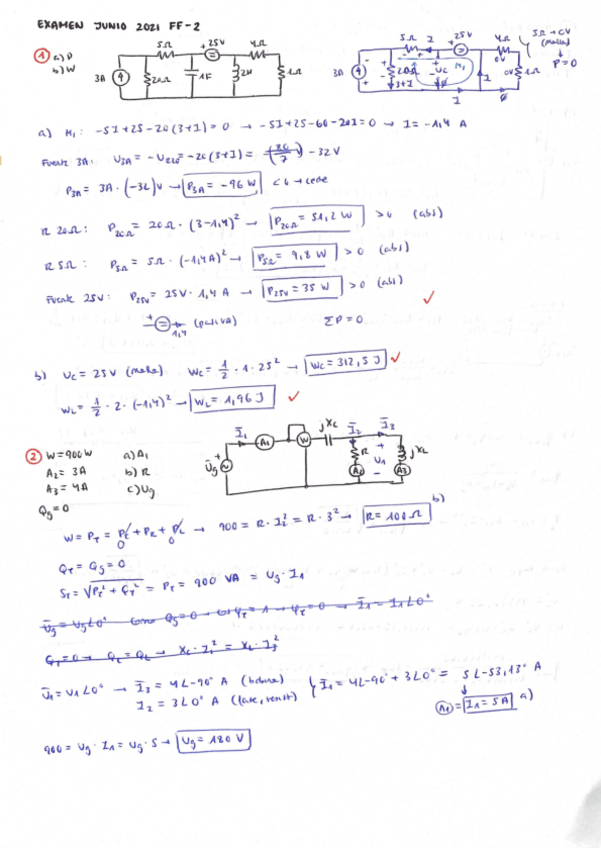 EXAMEN JUNIO 2021 FF-2
① a) P
b) W
5Ω + 25V 4Ω
3A 20Ω 1F 2H 1Ω
5Ω I + 25V 4Ω
3A 20Ω UC M₁ 0V 0V 1Ω
3+I I
P=0
a) M₁: -5I+25-20(3+I)=0 → -5I+25-60-20I=0 → I= -1,4 A
Fuente 3A: U3A = -U20Ω = -20(3+I) = -32V
P3A = 3A·(-32)V → P3A = -96 W <0 → cede
R 20Ω: P20Ω = 20Ω·(3-1,4)² → P20Ω = 51,2 W >0 (abs)
R 5Ω: P5Ω = 5Ω·(-1,4A)² → P5Ω = 9,8 W >0 (abs)
Fuente 25V: P25V = 25V·1,4 A → P25V = 35 W >0 (abs)
1,4 (pasiva) ΣP=0
b) UC = 25V (malla) WC = 1/2·1·25² → WC = 312,5 J
WL = 1/2·2·(-1,4)² → WL = 1,96 J
② W=900W a) A₁
A₂= 3A b) R
A₃= 4A c) Ug
Qg=0
Ūg Ī₁ A₁ W jXC Ī₂ Ī₃ R U₁ jXL A₂ A₃
W = PT = PC + PR + PL → 900 = R·I₂² = R·3² → R=100Ω b)
0 0
QT = Qg = 0
ST = √(PT²+QT²) = PT = 900 VA = Ug·I₁
QT=0 → QC = QL → XC·I₁² = XL·I₃²
Ū₁ = U₁∠0° → Ī₃ = 4∠-90° A (bobina)
Ī₂ = 3∠0° A (resist)
Ī₁ = 4∠-90° + 3∠0° = 5∠-53,13° A
A₁ = I₁ = 5A a)
900 = Ug·I₁ = Ug·5 → Ug = 180 V